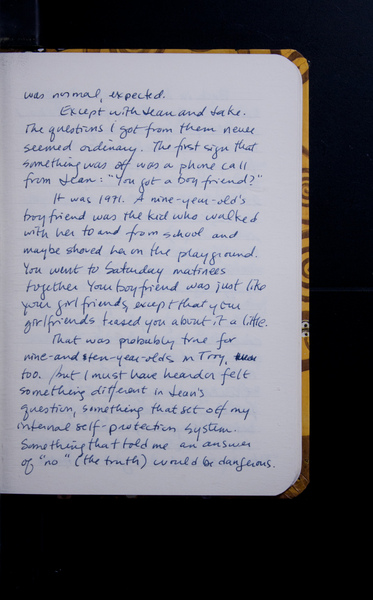 was normal, expected.
Except with Jean and Jake.
The questions I got from them never
seemed ordinary. The first sign that
something was off was a phone call
from Jean: "You got a boyfriend?"
It was 1971. A nine-year-old's
boyfriend was the kid who walked
with her to and from school and
maybe shoved her on the playground.
You went to Saturday matinees
together. Your boyfriend was just like
your girlfriends, except that your
girlfriends teased you about it a little.
That was probably true for
nine-and ten-year-olds in Troy,
too. But I must have heard or felt
something different in Jean's
question, something that set off my
internal self-protection system.
Something that told me an answer
of "no" (the truth) would be dangerous.